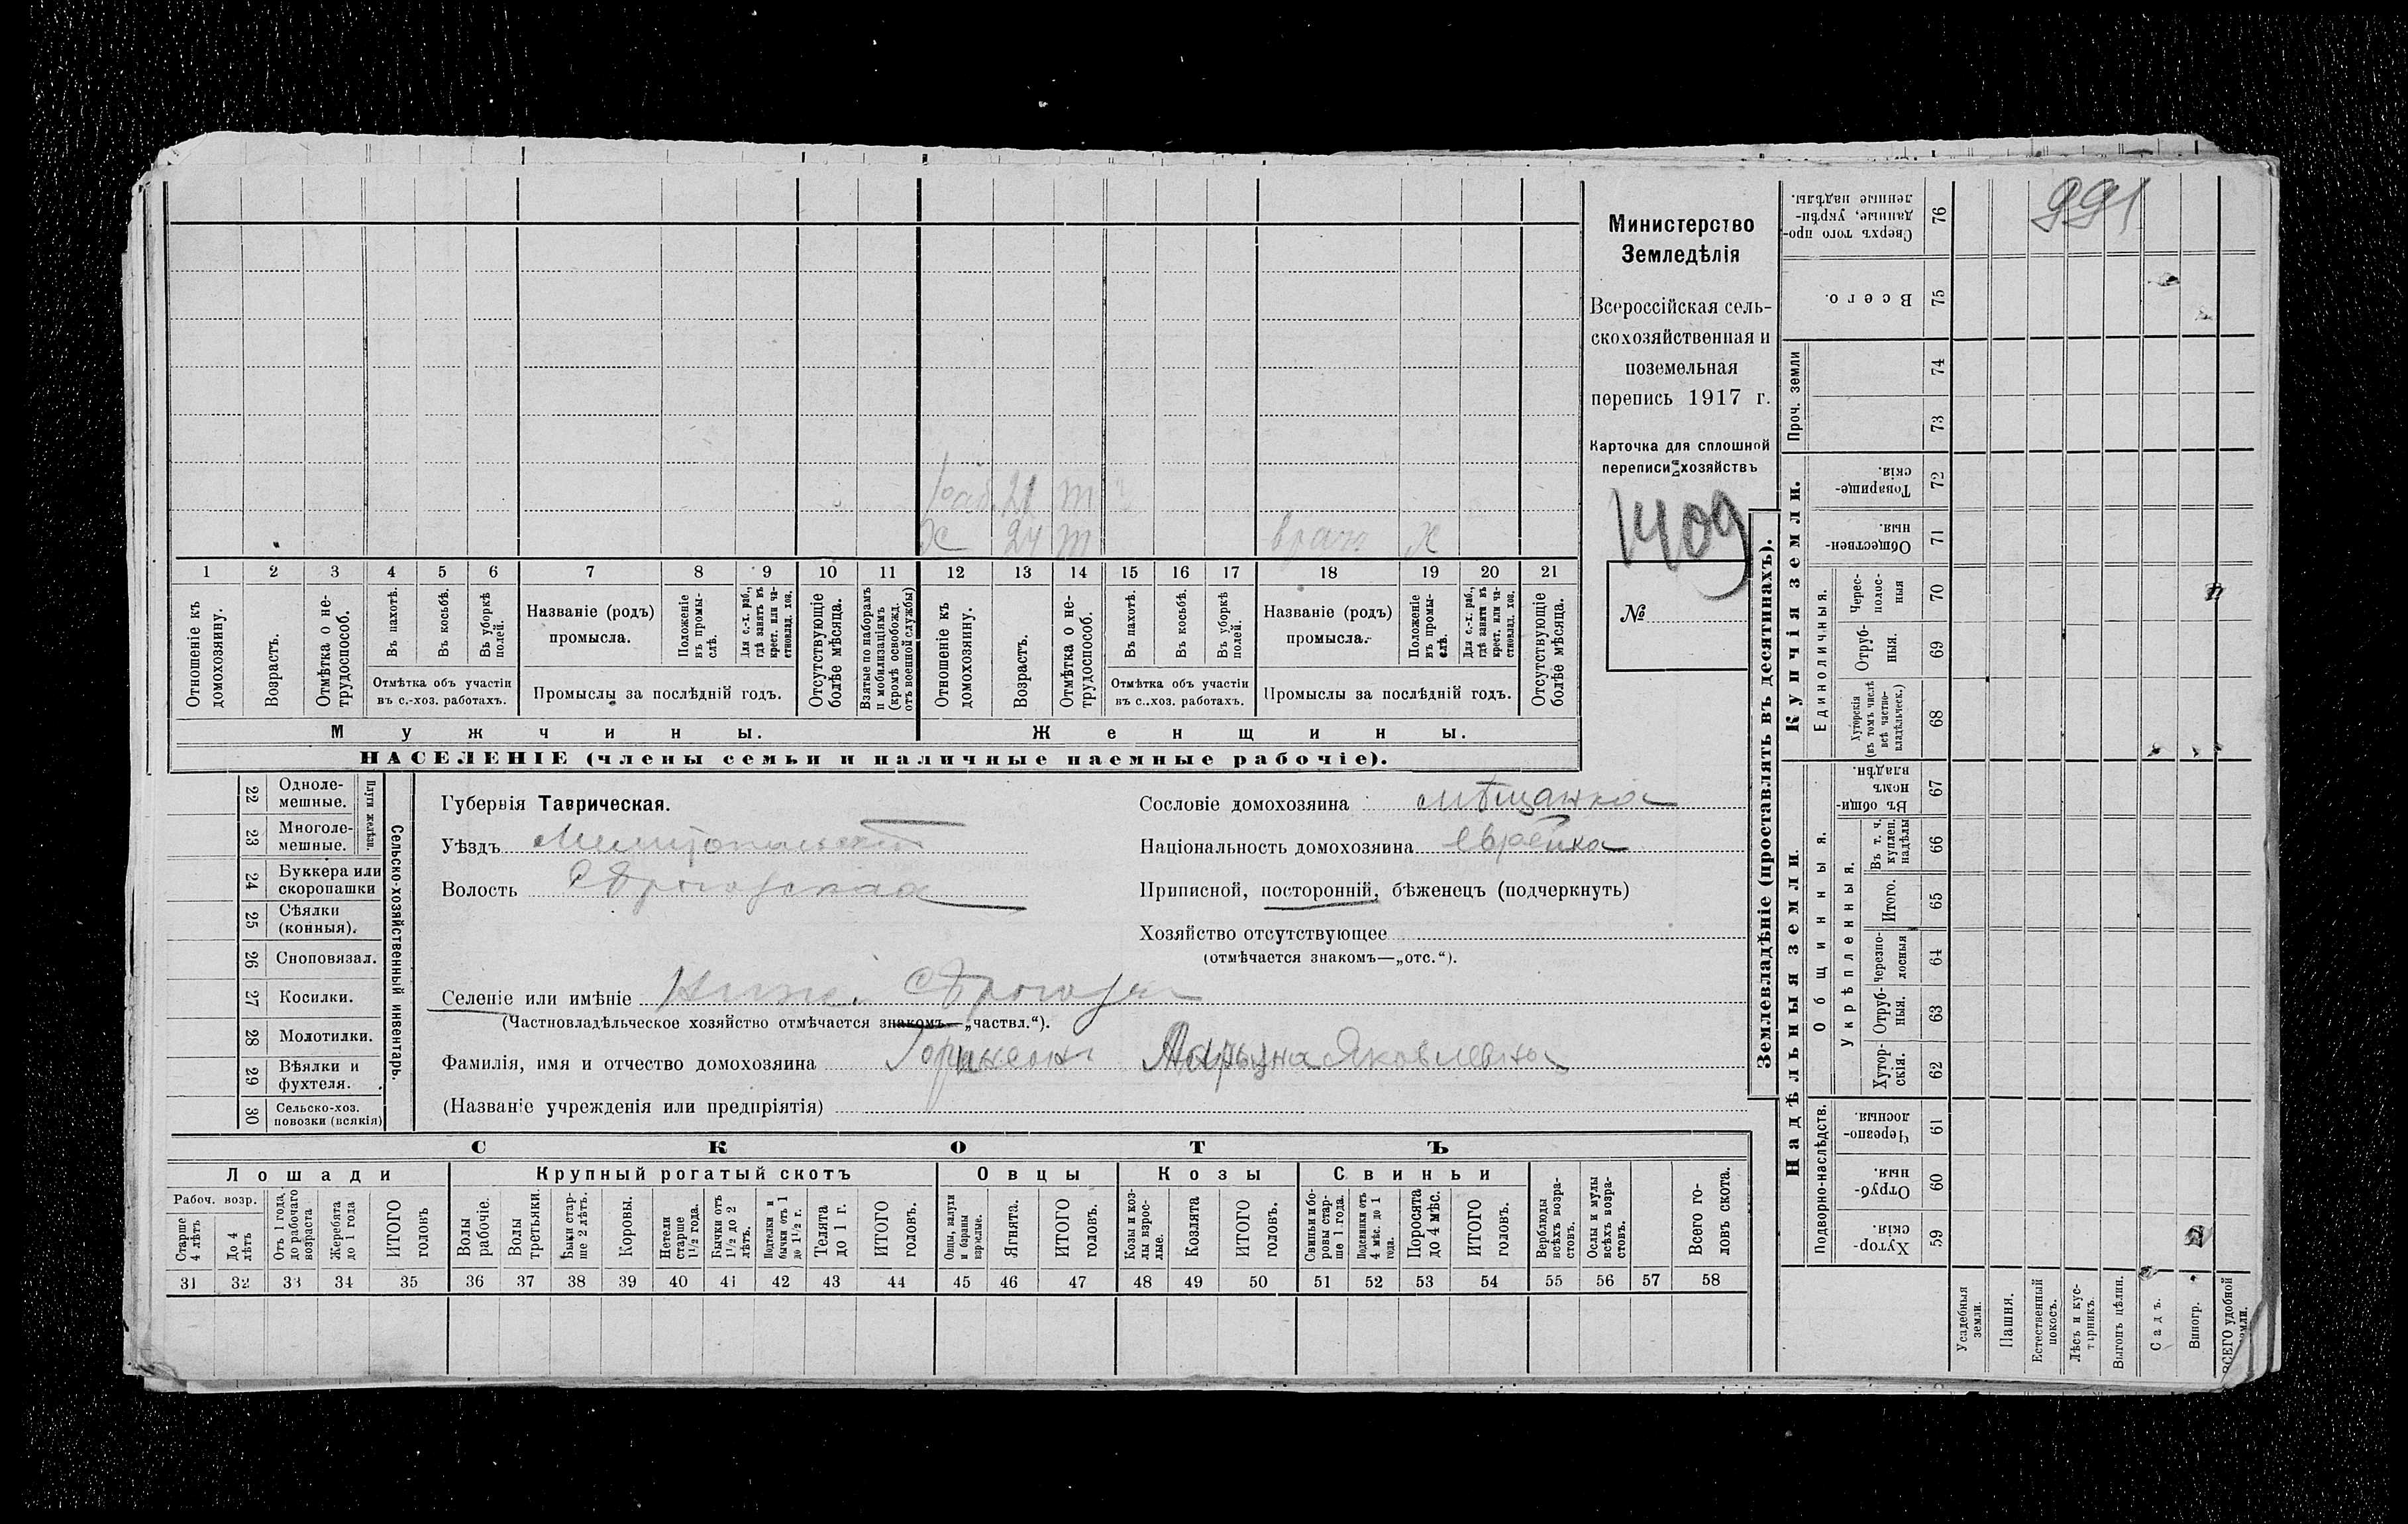 991
Министерство
Земледѣлія
Всероссійская сель-
скохозяйственная и
поземельная
перепись 1917 г.
Карточка для сплошной
переписи хозяйствъ
1409
№
раб. 21 т
х 24 т врач х
1 2 3 4 5 6 7 8 9 10 11 12 13 14 15 16 17 18 19 20 21
Отношеніе къ домохозяину.
Возрастъ.
Отмѣтка о не-трудоспособ.
Въ пахотѣ.
Въ косьбѣ.
Въ уборкѣ полей.
Отмѣтка объ участіи
въ с.-хоз. работахъ.
Названіе (родъ)
промысла.
Положеніе въ промы-слѣ.
Для с.-х. раб., гдѣ занятъ въ крест. или ча-стновлад. хоз.
Промыслы за послѣдній годъ.
Отсутствующіе болѣе мѣсяца.
Взятые по наборамъ и мобилизаціямъ (кромѣ освобожд. отъ военной службы)
Отношеніе къ домохозяину.
Возрастъ.
Отмѣтка о не-трудоспособ.
Въ пахотѣ.
Въ косьбѣ.
Въ уборкѣ полей.
Отмѣтка объ участіи
въ с..хоз. работахъ.
Названіе (родъ)
промысла.
Положеніе въ промы-слѣ.
Для с.-х. раб., гдѣ занята въ крест. или ча-стновлад. хоз.
Промыслы за послѣдній годъ.
Отсутствующіе болѣе мѣсяца.
Мужчины.
Женщины.
НАСЕЛЕНІЕ (члены семьи и наличные наемные рабочіе).
Сельско-хозяйственный инвентарь.
Плуги желѣзн.
22 Одноле-мешные.
23 Многоле-мешные.
24 Буккера или скоропашки
25 Сѣялки (конныя).
26 Сноповязал.
27 Косилки.
28 Молотилки.
29 Вѣялки и фухтеля.
30 Сельско-хоз. повозки (всякія)
Губернія Таврическая.
Уѣздъ Мелитопольскій
Волость Сѣрогозская
Селеніе или имѣніе Нижн. Сѣрогозы
(Частновладѣльческое хозяйство отмѣчается знакомъ—„частвл.“).
Фамилія, имя и отчество домохозяина Яковлевна
(Названіе учрежденія или предпріятія)
Сословіе домохозяина мѣщанка
Національность домохозяина еврейка
Приписной, посторонній, бѣженецъ (подчеркнуть)
Хозяйство отсутствующее
(отмѣчается знакомъ—„отс.“).
СКОТЪ
Лошади
Крупный рогатый скотъ
Овцы
Козы
Свиньи
Рабоч. возр.
Старше 4 лѣтъ
До 4 лѣтъ
Отъ 1 года, до рабочаго возраста
Жеребята до 1 года
ИТОГО головъ
Волы рабочіе.
Волы третьяки.
Быки стар-ше 2 лѣтъ.
Коровы.
Нетели старше 1½ года.
Бычки отъ 1½ до 2 лѣтъ.
Подтелки и бычки отъ 1 до 1½ г.
Телята до 1 г.
ИТОГО головъ.
Овцы, валухи и бараны взрослые.
Ягнята.
ИТОГО головъ.
Козы и коз-лы взрос-лые.
Козлята
ИТОГО головъ.
Свиньи и бо-ровы стар-ше 1 года.
Подсвинки отъ 4 мѣс. до 1 года.
Поросята до 4 мѣс.
ИТОГО головъ.
Верблюды всѣхъ возра-стовъ.
Ослы и мулы всѣхъ возра-стовъ.
Всего го-ловъ скота.
31 32 33 34 35 36 37 38 39 40 41 42 43 44 45 46 47 48 49 50 51 52 53 54 55 56 57 58
Землевладѣніе (проставлять въ десятинахъ).
Купчія земли.
Надѣльныя земли.
Сверхъ того про-данные, укрѣп-ленные надѣлы. 76
Всего. 75
Проч. земли
74
73
Товарище-скія. 72
Обществен-ныя. 71
Единоличныя.
Черес-полос-ныя 70
Отруб-ныя. 69
Хуторскія (въ томъ числѣ всѣ частно-владѣльческ.) 68
Общинныя.
Въ общи-номъ владѣн. 67
Укрѣпленныя.
Въ т. ч. куплен. надѣлы 66
Итого. 65
Черезпо-лосныя 64
Отруб-ныя. 63
Хутор-скія. 62
Подворно-наслѣдств.
Черезпо-лосныя. 61
Отруб-ныя. 60
Хутор-скія. 59
Усадебныя земли.
Пашня.
Естественный покосъ.
Лѣсъ и кус-тарникъ.
Выгонъ цѣлин.
Садъ.
Виногр.
ВСЕГО удобной земли.